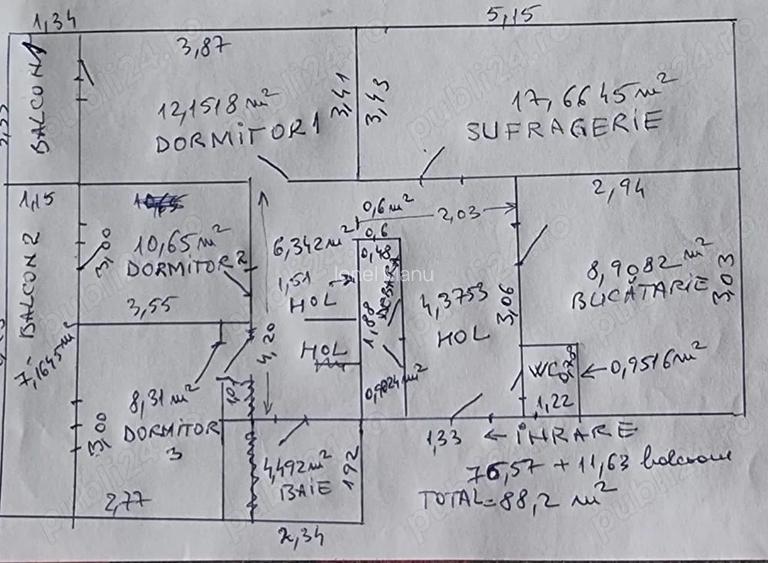 1,34
5,15
BALCON 1
3,87
12,1518 m²
DORMITOR 1
3,41
3,43
17,6645 m²
SUFRAGERIE
1,15
BALCON 2
7,1645 m²
3,00
10,65 m²
DORMITOR 2
3,55
6,342 m²
1,51
HOL
HOL
4,20
0,6 m²
0,6
0,48
1,88
0,9024 m²
2,03
4,3753
HOL
3,06
2,94
8,9082 m²
BUCĂTARIE
3,03
WC
0,78
1,22
← 0,9516 m²
8,31 m²
DORMITOR
3
3,00
2,77
4,492 m²
BAIE
1,92
2,34
1,33 ← INRARE
76,57 + 11,63 balcoane
TOTAL = 88,2 m²
Ionel Manu
publi24.ro